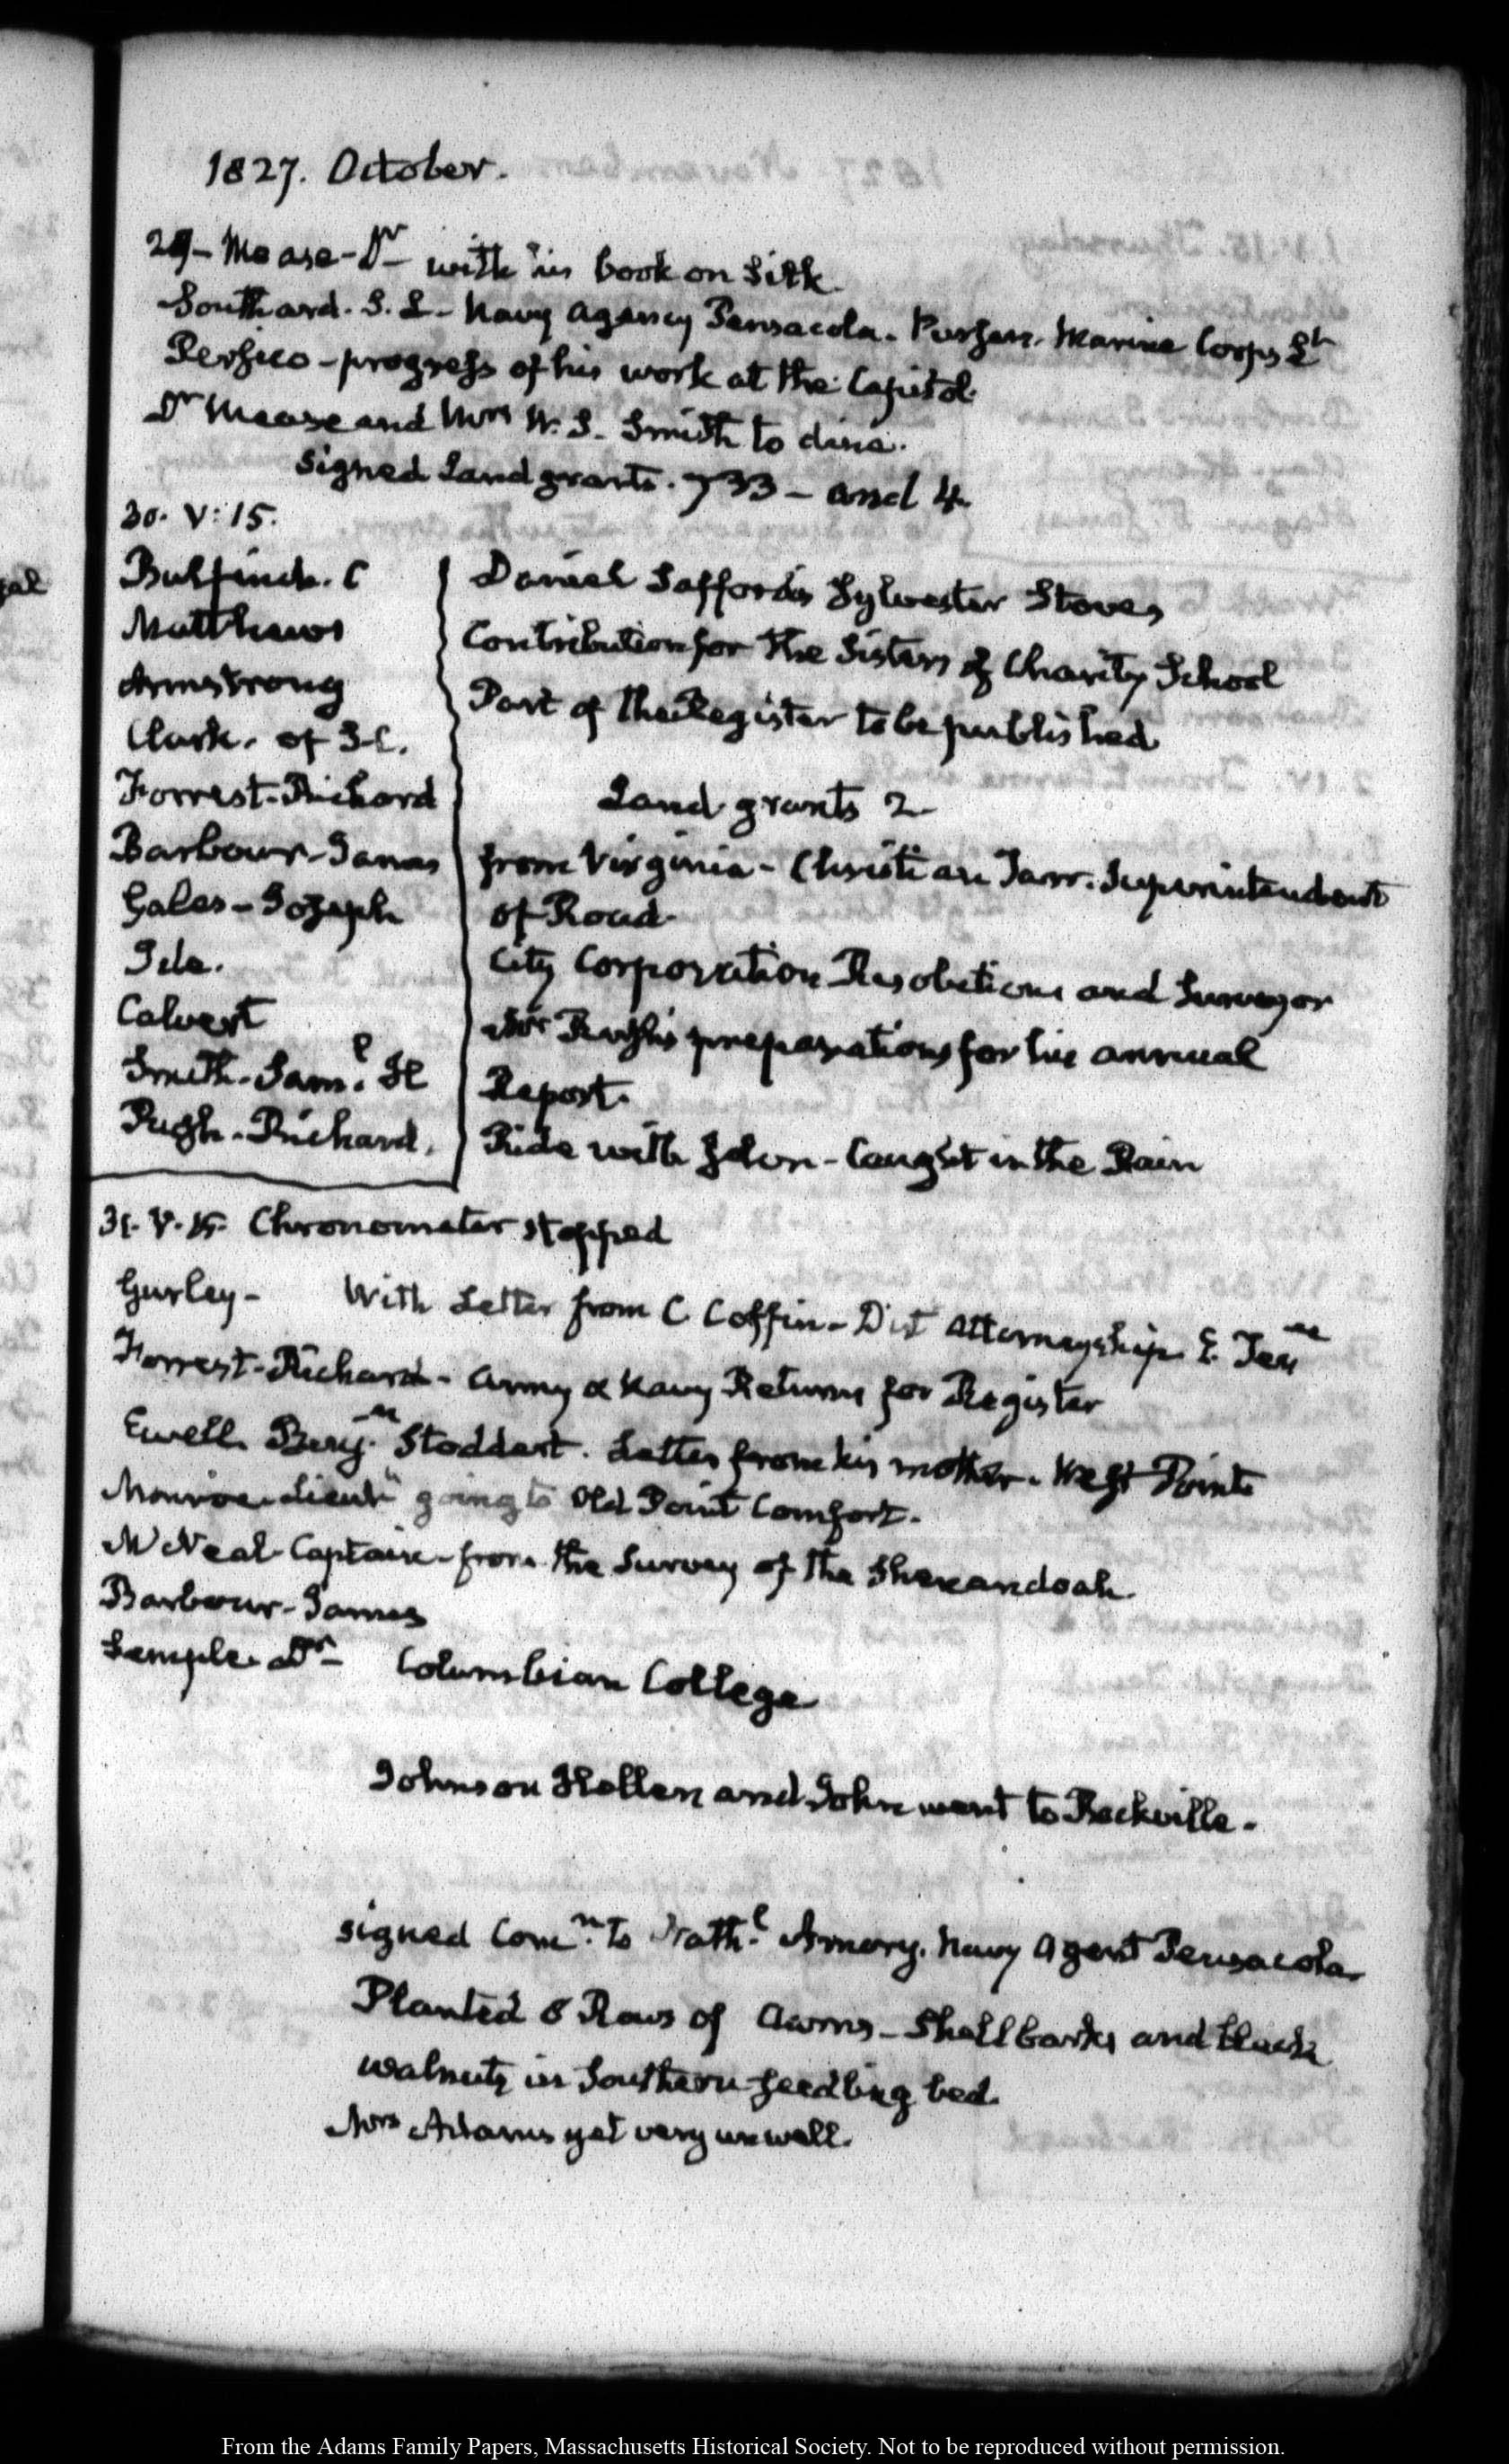 1827. October.
29– Mease–Dr– with his book on Silk.
Southard. S. L– Navy Agency Pensacola. Purser. Marine Corps Lt
Persico–progress of his work at the Capitol.
Dr Mease and Mrs W. S. Smith to dine.
signed Land grants. 733– and 4.
30. V:15.
Bulfinch. C
Matthews
Armstrong
Clark. of S.C.
Forrest–Richard
Barbour–James
Gales–Joseph
Ide.
Calvert
Smith–Saml. H
Pugh–Richard.
Daniel Safford's Sylvester Stoves
Contribution for the Sisters of Charity School
Part of the Register to be published
Land grants 2–
from Virginia– Christian Tarr. Superintendent
of Road.
City Corporation Resolutions and Surveyor
Mr Rush's preparations for his annual
Report.
Ride with John– Caught in the Rain
31. V.15. Chronometer stopped
Gurley– With Letter from C Coffin– Dist Attorneyship E. Tenne
Forrest–Richard– Army & Navy Returns for Register
Ewell. Benjn. Stoddert. Letter from his mother. West Point
Monroe. Lieutt going to Old Point Comfort.
McNeal–Captain–from the Survey of the Shenandoah.
Barbour–James
Semple. Dr– Columbian College
Johnson Hellen and John went to Rockville.
signed Comn. to Nathl. Amory. Navy Agent Pensacola
Planted 8 Rows of Acorns– Shellbarks and black
walnuts in Southern seedling bed.
Mrs Adams yet very unwell.
From the Adams Family Papers, Massachusetts Historical Society. Not to be reproduced without permission.